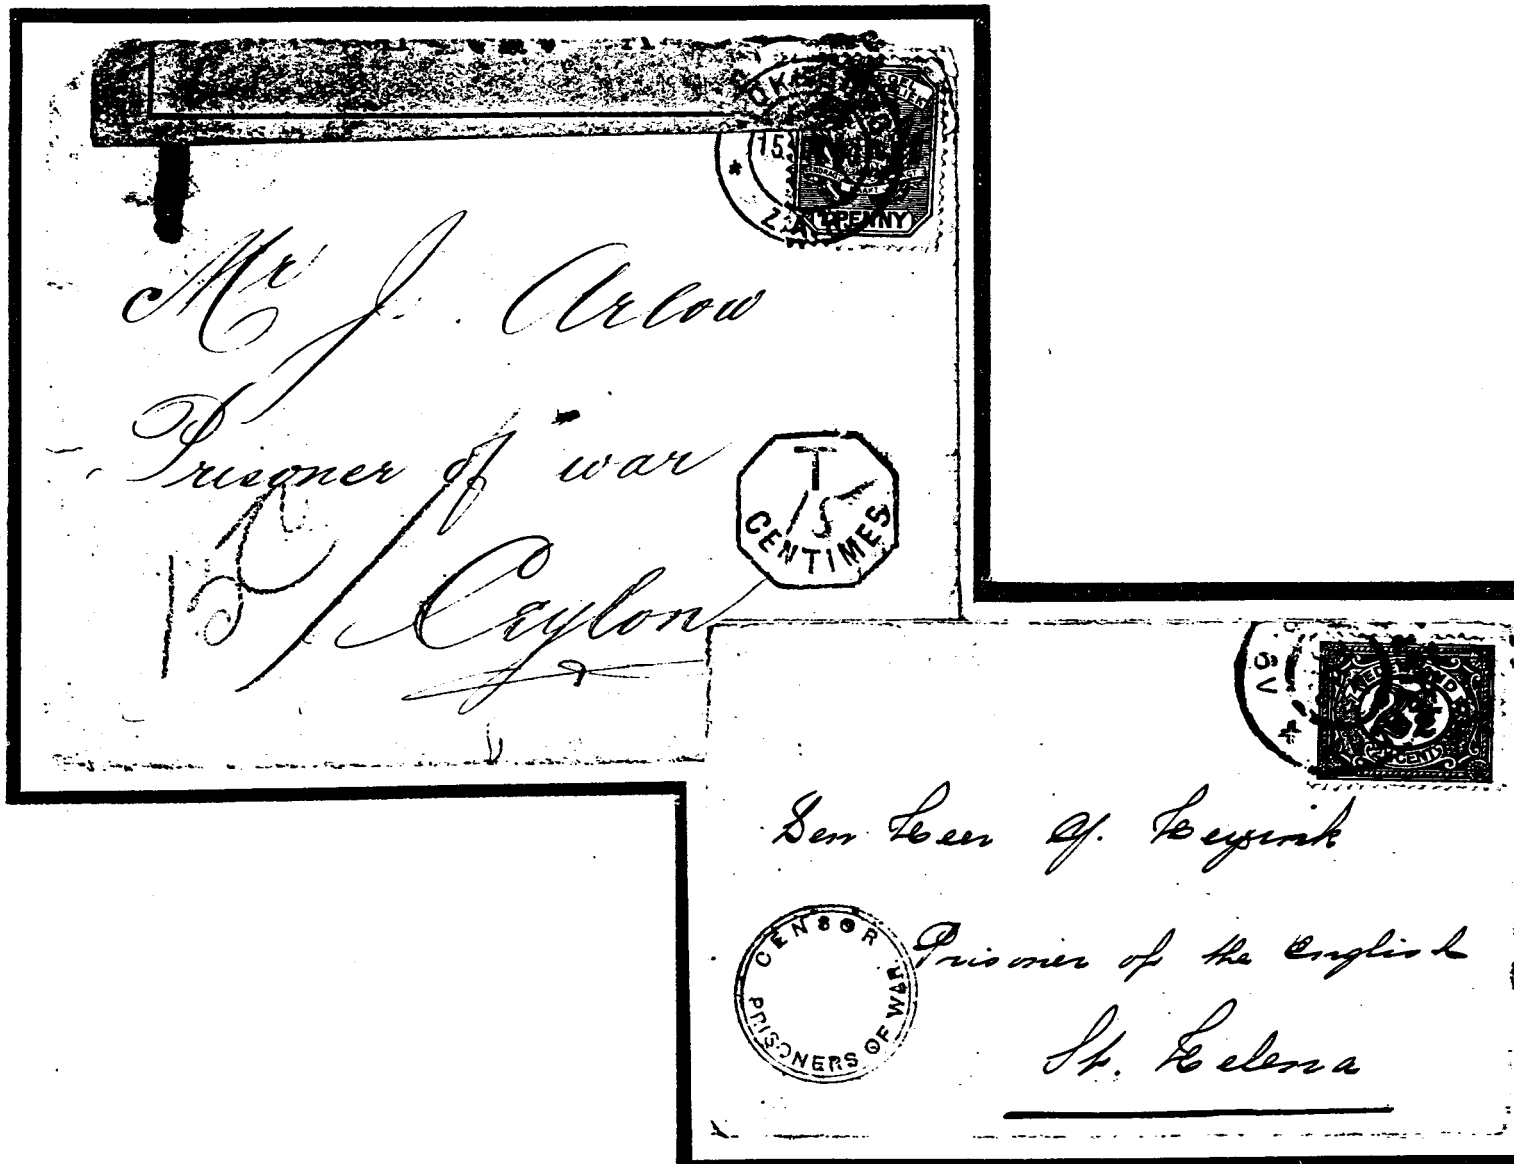 15
Z.A.R.
PENNY
Mr J. Arlow
Prisoner of war
Ceylon
T
15
CENTIMES
6V
2½
CENT
Den Heer G. Heyink
Prisoner of the English
St. Helena
CENSOR
PRISONERS OF WAR